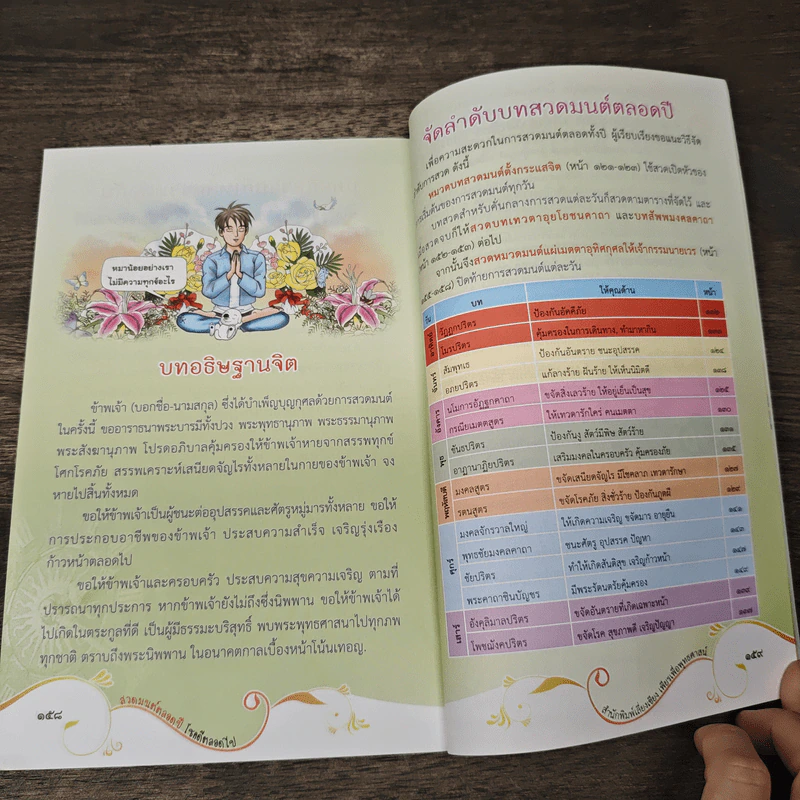 หมาน้อยอย่างเรา
ไม่มีความทุกข์อะไร
บทอธิษฐานจิต
ข้าพเจ้า (บอกชื่อ-นามสกุล) ซึ่งได้บำเพ็ญบุญกุศลด้วยการสวดมนต์
ในครั้งนี้ ขออาราธนาพระบารมีทั้งปวง พระพุทธานุภาพ พระธรรมานุภาพ
พระสังฆานุภาพ โปรดอภิบาลคุ้มครองให้ข้าพเจ้าหายจากสรรพทุกข์
โศกโรคภัย สรรพเคราะห์เสนียดจัญไรทั้งหลายในกายของข้าพเจ้า จง
หายไปสิ้นทั้งหมด
ขอให้ข้าพเจ้าเป็นผู้ชนะต่ออุปสรรคและศัตรูหมู่มารทั้งหลาย ขอให้
การประกอบอาชีพของข้าพเจ้า ประสบความสำเร็จ เจริญรุ่งเรือง
ก้าวหน้าตลอดไป
ขอให้ข้าพเจ้าและครอบครัว ประสบความสุขความเจริญ ตามที่
ปรารถนาทุกประการ หากข้าพเจ้ายังไม่ถึงซึ่งนิพพาน ขอให้ข้าพเจ้าได้
ไปเกิดในตระกูลที่ดี เป็นผู้มีธรรมะบริสุทธิ์ พบพระพุทธศาสนาไปทุกภพ
ทุกชาติ ตราบถึงพระนิพพาน ในอนาคตกาลเบื้องหน้าโน้นเทอญ.
๑๕๘
สวดมนต์ตลอดปี โชคดีตลอดไป
จัดลำดับบทสวดมนต์ตลอดปี
เพื่อความสะดวกในการสวดมนต์ตลอดทั้งปี ผู้เรียบเรียงขอแนะวิธีจัด
ดับการสวด ดังนี้
หมวดบทสวดมนต์ตั้งกระแสจิต (หน้า ๑๒๑-๑๒๓) ใช้สวดเปิดหัวของ
เริ่มต้นของการสวดมนต์ทุกวัน
บทสวดสำหรับคั่นกลางการสวดแต่ละวันก็สวดตามตารางที่จัดไว้ และ
สวดจบก็ให้สวดบทเทวดาอุยโยชนคาถา และบทสัพพมงคลคาถา
หน้า ๑๕๒-๑๕๓) ต่อไป
จากนั้นจึงสวดหมวดมนต์แผ่เมตตาอุทิศกุศลให้เจ้ากรรมนายเวร (หน้า
๑๕๕-๑๕๘) ปิดท้ายการสวดมนต์แต่ละวัน
วัน บท ให้คุณด้าน หน้า
อาทิตย์ วัฏฏกปริตร ป้องกันอัคคีภัย
โมรปริตร คุ้มครองในการเดินทาง, ทำมาหากิน
จันทร์ สัมพุทเธ ป้องกันอันตราย ชนะอุปสรรค ๑๒๔
อภยปริตร แก้ลางร้าย ฝันร้าย ให้เห็นนิมิตดี ๑๓๘
อังคาร นโมการอัฏฐกคาถา ขจัดสิ่งเลวร้าย ให้อยู่เย็นเป็นสุข ๑๒๕
กรณียเมตตสูตร ให้เทวดารักใคร่ คนเมตตา ๑๓๐
พุธ ขันธปริตร ป้องกันงู สัตว์มีพิษ สัตว์ร้าย ๑๓๑
อาฏานาฏิยปริตร เสริมมงคลในครอบครัว คุ้มครองภัย ๑๓๕
พฤหัสบดี มงคลสูตร ขจัดเสนียดจัญไร มีโชคลาภ เทวดารักษา ๑๒๗
รตนสูตร ขจัดโรคภัย สิ่งชั่วร้าย ป้องกันภูตผี ๑๒๙
ศุกร์ มงคลจักรวาลใหญ่ ให้เกิดความเจริญ ขจัดมาร อายุยืน ๑๔๑
พุทธชัยมงคลคาถา ชนะศัตรู อุปสรรค ปัญหา ๑๔๓
ชัยปริตร ทำให้เกิดสันติสุข เจริญก้าวหน้า ๑๔๗
พระคาถาชินบัญชร มีพระรัตนตรัยคุ้มครอง ๑๔๙
เสาร์ อังคุลิมาลปริตร ขจัดอันตรายที่เกิดเฉพาะหน้า ๑๓๗
โพชฌังคปริตร ขจัดโรค สุขภาพดี เจริญปัญญา ๑๓๗
สำนักพิมพ์เลี่ยงเชียง เพียรเพื่อพุทธศาสน์
๑๕๙